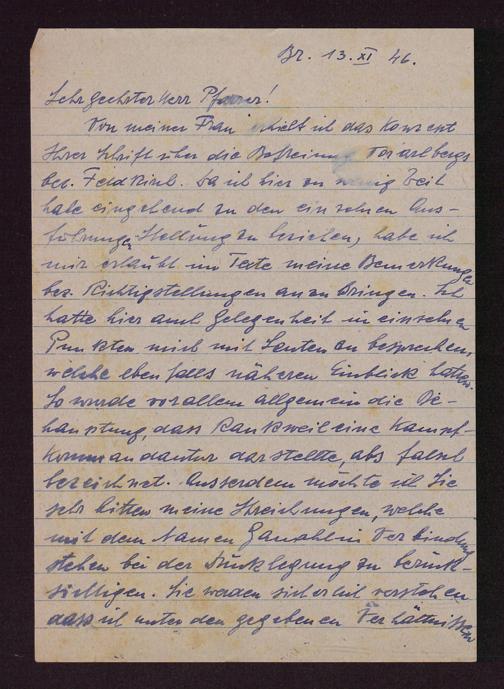 Br. 13. XI 46.
Sehrgeehrter Herr Pfarrer!
Von meiner Frau erhielt ich das Konzept
Ihrer Schrift über die Befreiung Vorarlbergs
bez. Feldkirch. Da ich hier zu wenig Zeit
habe eingehend zu den einzelnen Aus-
führungen Stellung zu beziehen, habe ich
mir erlaubt im Texte meine Bemerkungen
bez. Richtigstellungen anzubringen. Ich
hatte hier auch Gelegenheit in einzelnen
Punkten mich mit Leuten zu besprechen,
welche ebenfalls näheren Einblick hatten.
So wurde vorallem allgemein die Be-
hauptung, dass Rankweil eine Kampf-
kommandantur darstellte, als falsch
bezeichnet. Ausserdem möchte ich Sie
sehr bitten meine Streichungen, welche
mit dem Namen Ganahl in Verbindung
stehen bei der Drucklegung zu berück-
sichtigen. Sie werden sicherlich verstehen
dass ich unter den gegebenen Verhältnissen